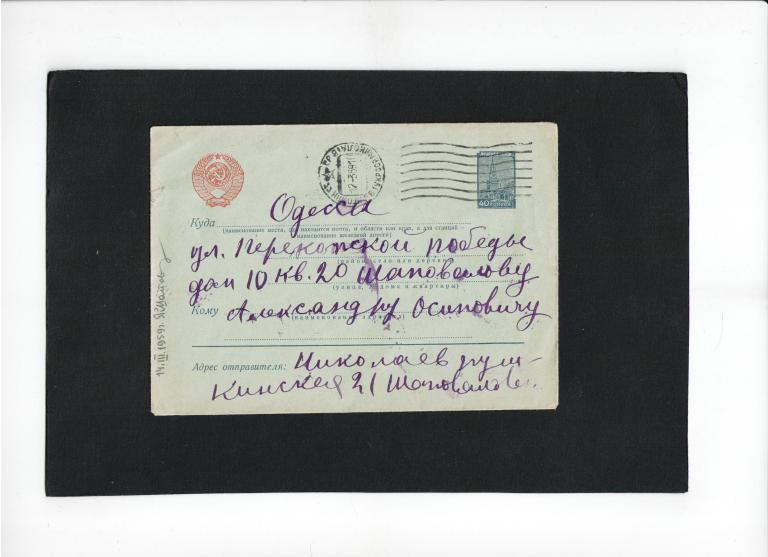 40
Куда Одесса
(наименование места, где находится почта, и области или края, а для станций –
наименование железной дороги)
ул. Перекопской победы
(район, село или деревня)
дом 10 кв. 20 Шаповалову
(улица, № дома и квартиры)
Кому Александру Осиповичу
Адрес отправителя: Николаев
21 Шаповалов
14.III.1959г.